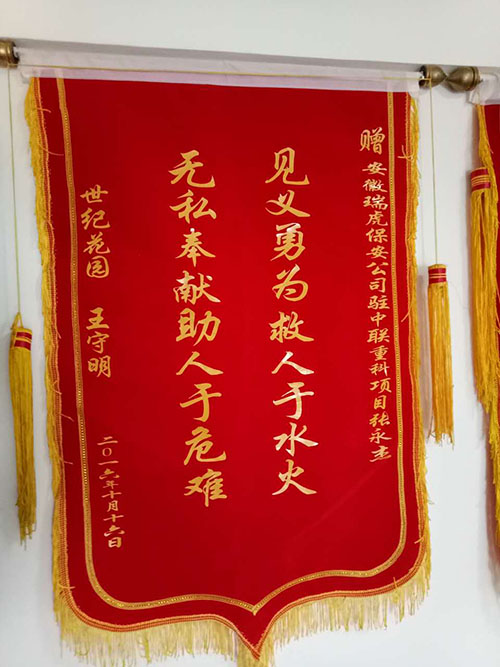 赠 安徽瑞虎保安公司驻中联重科项目张永杰
见义勇为救人于水火
无私奉献助人于危难
世纪花园 王守明
二〇一六年十月十六日